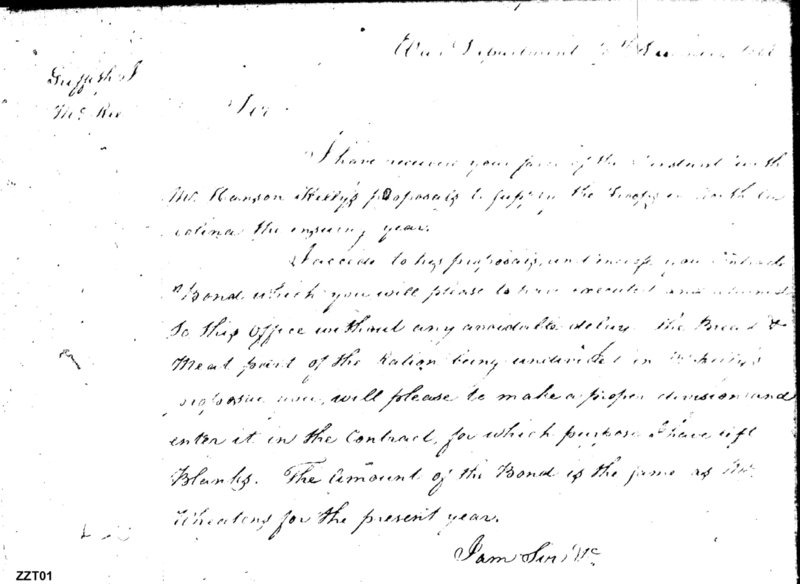 War Department
Griffith J
McRee
Sir
I have received your favor of the Instant with
Mr. Hanson Kelly's proposals to supply the Troops in North Ca
rolina the ensuing year.
I accede to his proposals, and inclose you Contract
Bond which you will please to have executed and returned
to this Office without any avoidable delay. The Bread &
Meat part of the Ration being undivided in Mr. Kelly's
proposal you, will please to make a proper division and
enter it in the Contract, for which purpose I have left
Blanks. The Amount of the Bond is the same as Mr.
Wheatons for the present year.
I am Sir &c
ZZT01